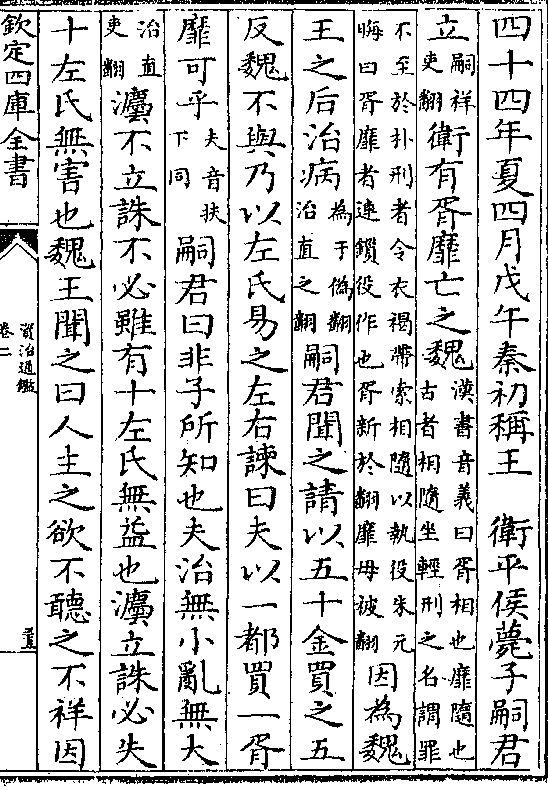 四十四年夏四月戊午秦初稱王　衛平侯薨子嗣君
立嗣祥吏翻衛有胥靡亡之魏漢書音義曰胥相也靡隨也古者相隨坐輕刑之名謂罪
不至於扑刑者令衣褐帶索相隨以執役朱元晦曰胥靡者連鎖役作也胥新於翻靡毋被翻因為魏
王之后治病為于偽翻治直之翻嗣君聞之請以五十金買之五
反魏不與乃以左氏易之左右諫曰夫以一都買一胥
靡可乎夫音扶下同嗣君曰非子所知也夫治無小亂無大
治直吏翻灋不立誅不必雖有十左氏無益也灋立誅必失
十左氏無害也魏王聞之曰人主之欲不聽之不祥因
欽定四庫全書
資治通鑑
卷二